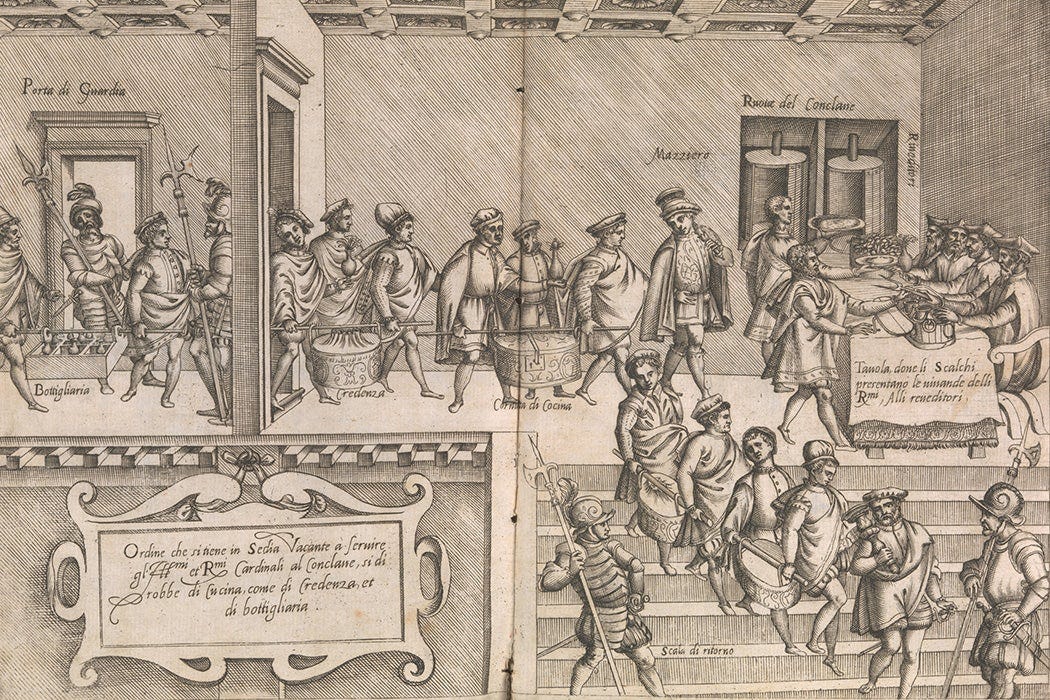 Porta di Guardia
Ruoue del Conclaue
Mazziero
Reueditori
Bottigliaria
Credenza
Cornuta di Cocina
Tauola, doue li Scalchi
presentano le uiuande delli
Rmi, Alli reueditori,
Ordine che si tiene in Sedia Vacante a seruire
gl'Illmi et Rmi Cardinali al Conclaue, si di
robbe di Cucina, come di Credenza, et
di bottigliaria.
Scala di ritorno